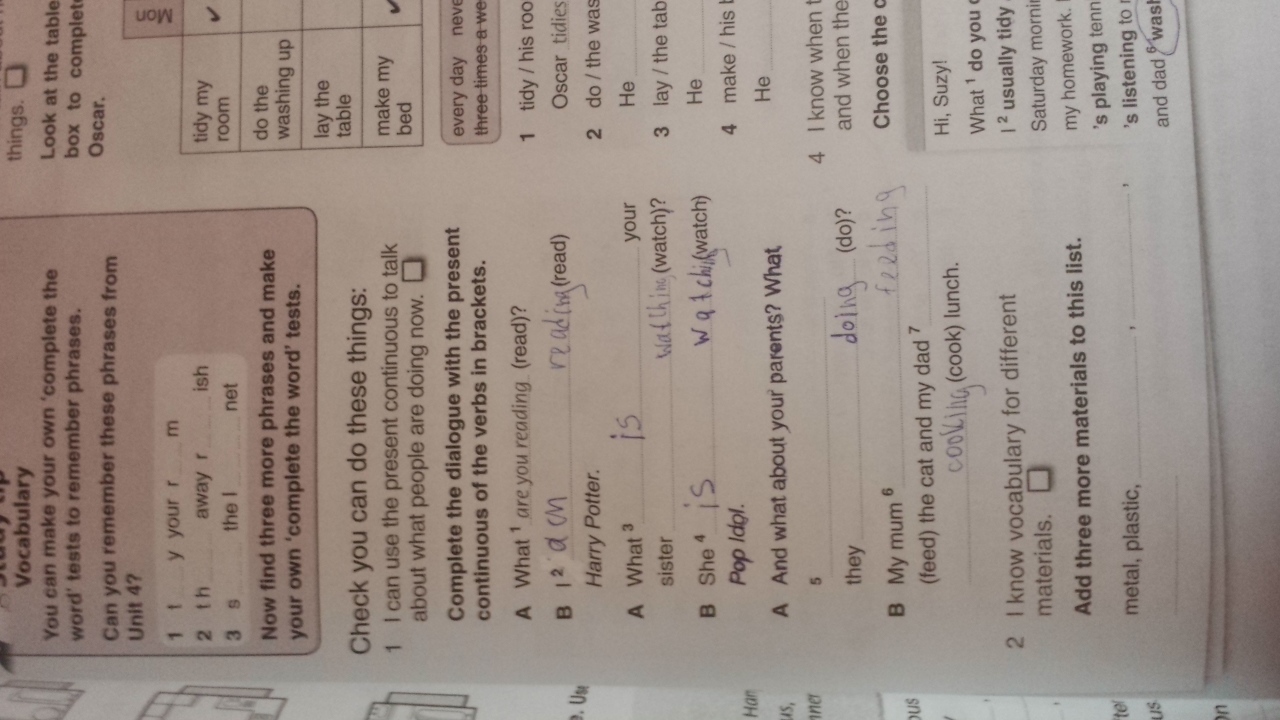 Vocabulary
You can make your own 'complete the
word' tests to remember phrases.
Can you remember these phrases from
Unit 4?
1 t y your r m
2 th away r ish
3 s the l net
Now find three more phrases and make
your own 'complete the word' tests.
Check you can do these things:
1 I can use the present continuous to talk
about what people are doing now.
Complete the dialogue with the present
continuous of the verbs in brackets.
A What 1 are you reading (read)?
B I 2 am reading (read)
Harry Potter.
A What 3 is your
sister watching (watch)?
B She 4 is watching (watch)
Pop Idol.
A And what about your parents? What
5
they doing (do)?
B My mum 6 feeding
(feed) the cat and my dad 7
cooking (cook) lunch.
2 I know vocabulary for different
materials.
Add three more materials to this list.
metal, plastic, , ,
things.
Look at the table
box to complete
Oscar.
Mon
tidy my
room ✓
do the
washing up
lay the
table
make my
bed ✓
every day
three times a
1 tidy / his
Oscar tidies
2 do / the
He
3 lay / the
He
4 make / his
He
4 I know when
and when the
Choose the
Hi, Suzy!
What 1 do you
I 2 usually tidy
Saturday
my homework.
's playing
's listening to
and dad 6